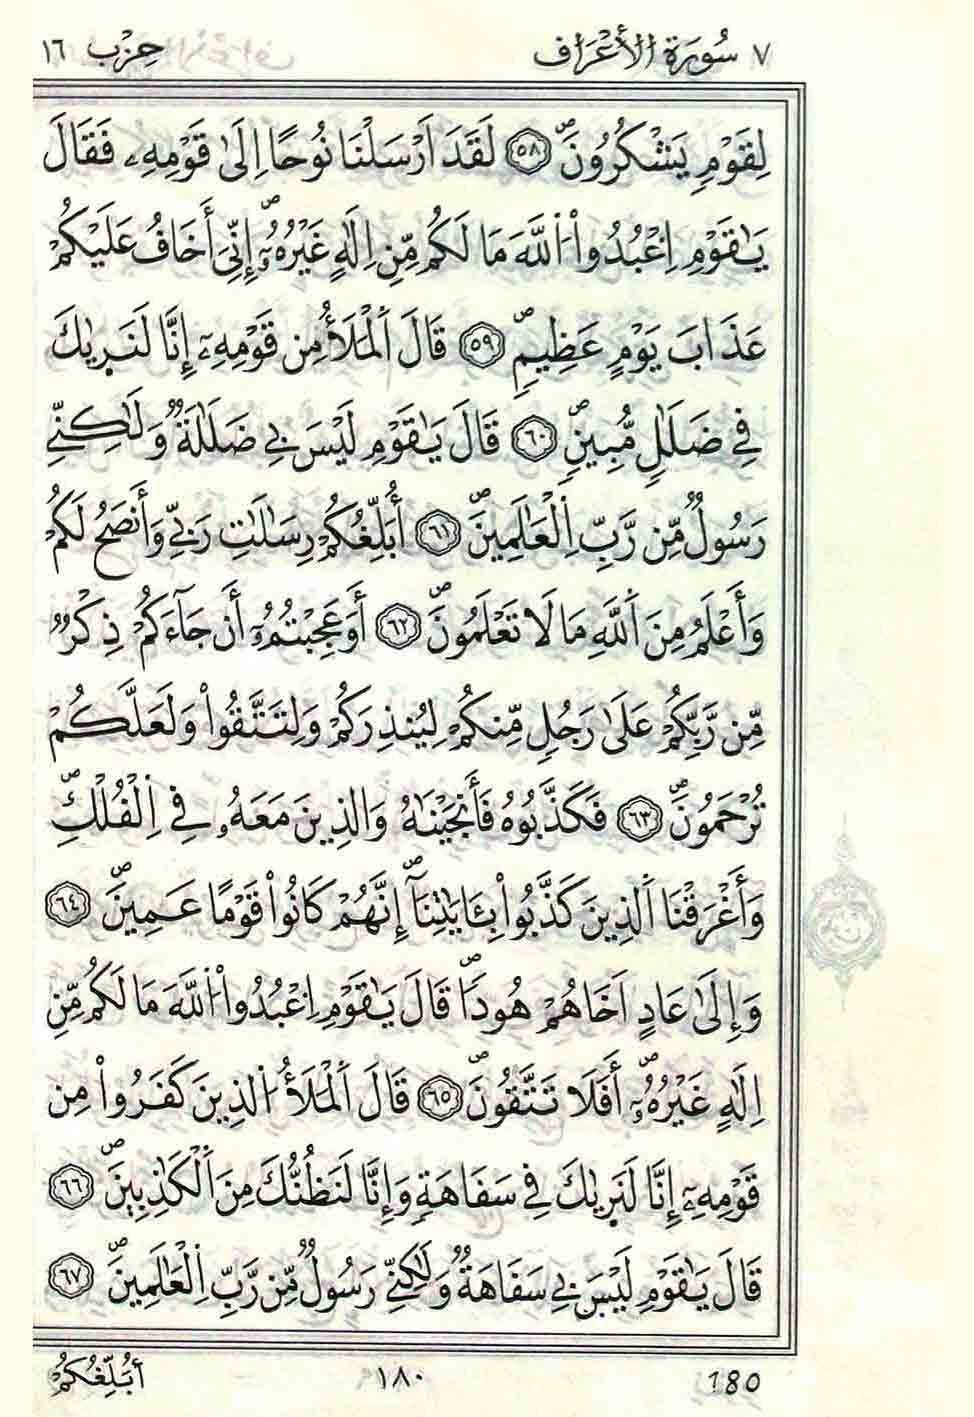 ٧ سُورَةُ الأَعْرَافِ حِزْب ١٦
لِقَوْمٍ يَشْكُرُونَۖ ٥٨ لَقَدَ اَرْسَلْنَا نُوحًا اِلَىٰ قَوْمِهِۦ فَقَالَ
يَٰقَوْمِ اِعْبُدُواْ اُللَّهَ مَا لَكُم مِّنِ اِلَٰهٍ غَيْرُهُۥٓۖ إِنِّيَ أَخَافُ عَلَيْكُمْ
عَذَابَ يَوْمٍ عَظِيمٖۖ ٥٩ قَالَ اَلْمَلَأُ مِن قَوْمِهِۦٓ إِنَّا لَنَرَىٰكَ
فِي ضَلَٰلٖ مُّبِينٖۖ ٦٠ قَالَ يَٰقَوْمِ لَيْسَ بِي ضَلَٰلَةٞ وَلَٰكِنِّي
رَسُولٞ مِّن رَّبِّ اِلْعَٰلَمِينَۖ ٦١ أُبَلِّغُكُمْ رِسَٰلَٰتِ رَبِّي وَأَنصَحُ لَكُمْ
وَأَعْلَمُ مِنَ اَللَّهِ مَا لَا تَعْلَمُونَۖ ٦٢ أَوَعَجِبْتُمُۥٓ أَن جَآءَكُمْ ذِكْرٞ
مِّن رَّبِّكُمْ عَلَىٰ رَجُلٖ مِّنكُمْ لِيُنذِرَكُمْ وَلِتَتَّقُواْ وَلَعَلَّكُمْ
تُرْحَمُونَۖ ٦٣ فَكَذَّبُوهُ فَأَنجَيْنَٰهُ وَالذِينَ مَعَهُۥ فِي اِلْفُلْكِۖ
وَأَغْرَقْنَا اَلذِينَ كَذَّبُواْ بِـَٔايَٰتِنَآۖ إِنَّهُمْ كَانُواْ قَوْمًا عَمِينَۖ ٦٤
وَإِلَىٰ عَادٍ اَخَاهُمْ هُودٗاۖ قَالَ يَٰقَوْمِ اِعْبُدُواْ اُللَّهَ مَا لَكُم مِّنِ
اِلَٰهٍ غَيْرُهُۥٓۖ أَفَلَا تَتَّقُونَۖ ٦٥ قَالَ اَلْمَلَأُ اُلذِينَ كَفَرُواْ مِن
قَوْمِهِۦٓ إِنَّا لَنَرَىٰكَ فِي سَفَاهَةٖ وَإِنَّا لَنَظُنُّكَ مِنَ اَلْكَٰذِبِينَۖ ٦٦
قَالَ يَٰقَوْمِ لَيْسَ بِي سَفَاهَةٞ وَلَٰكِنِّي رَسُولٞ مِّن رَّبِّ اِلْعَٰلَمِينَۖ ٦٧
180 ١٨٠ أُبَلِّغُكُمْ